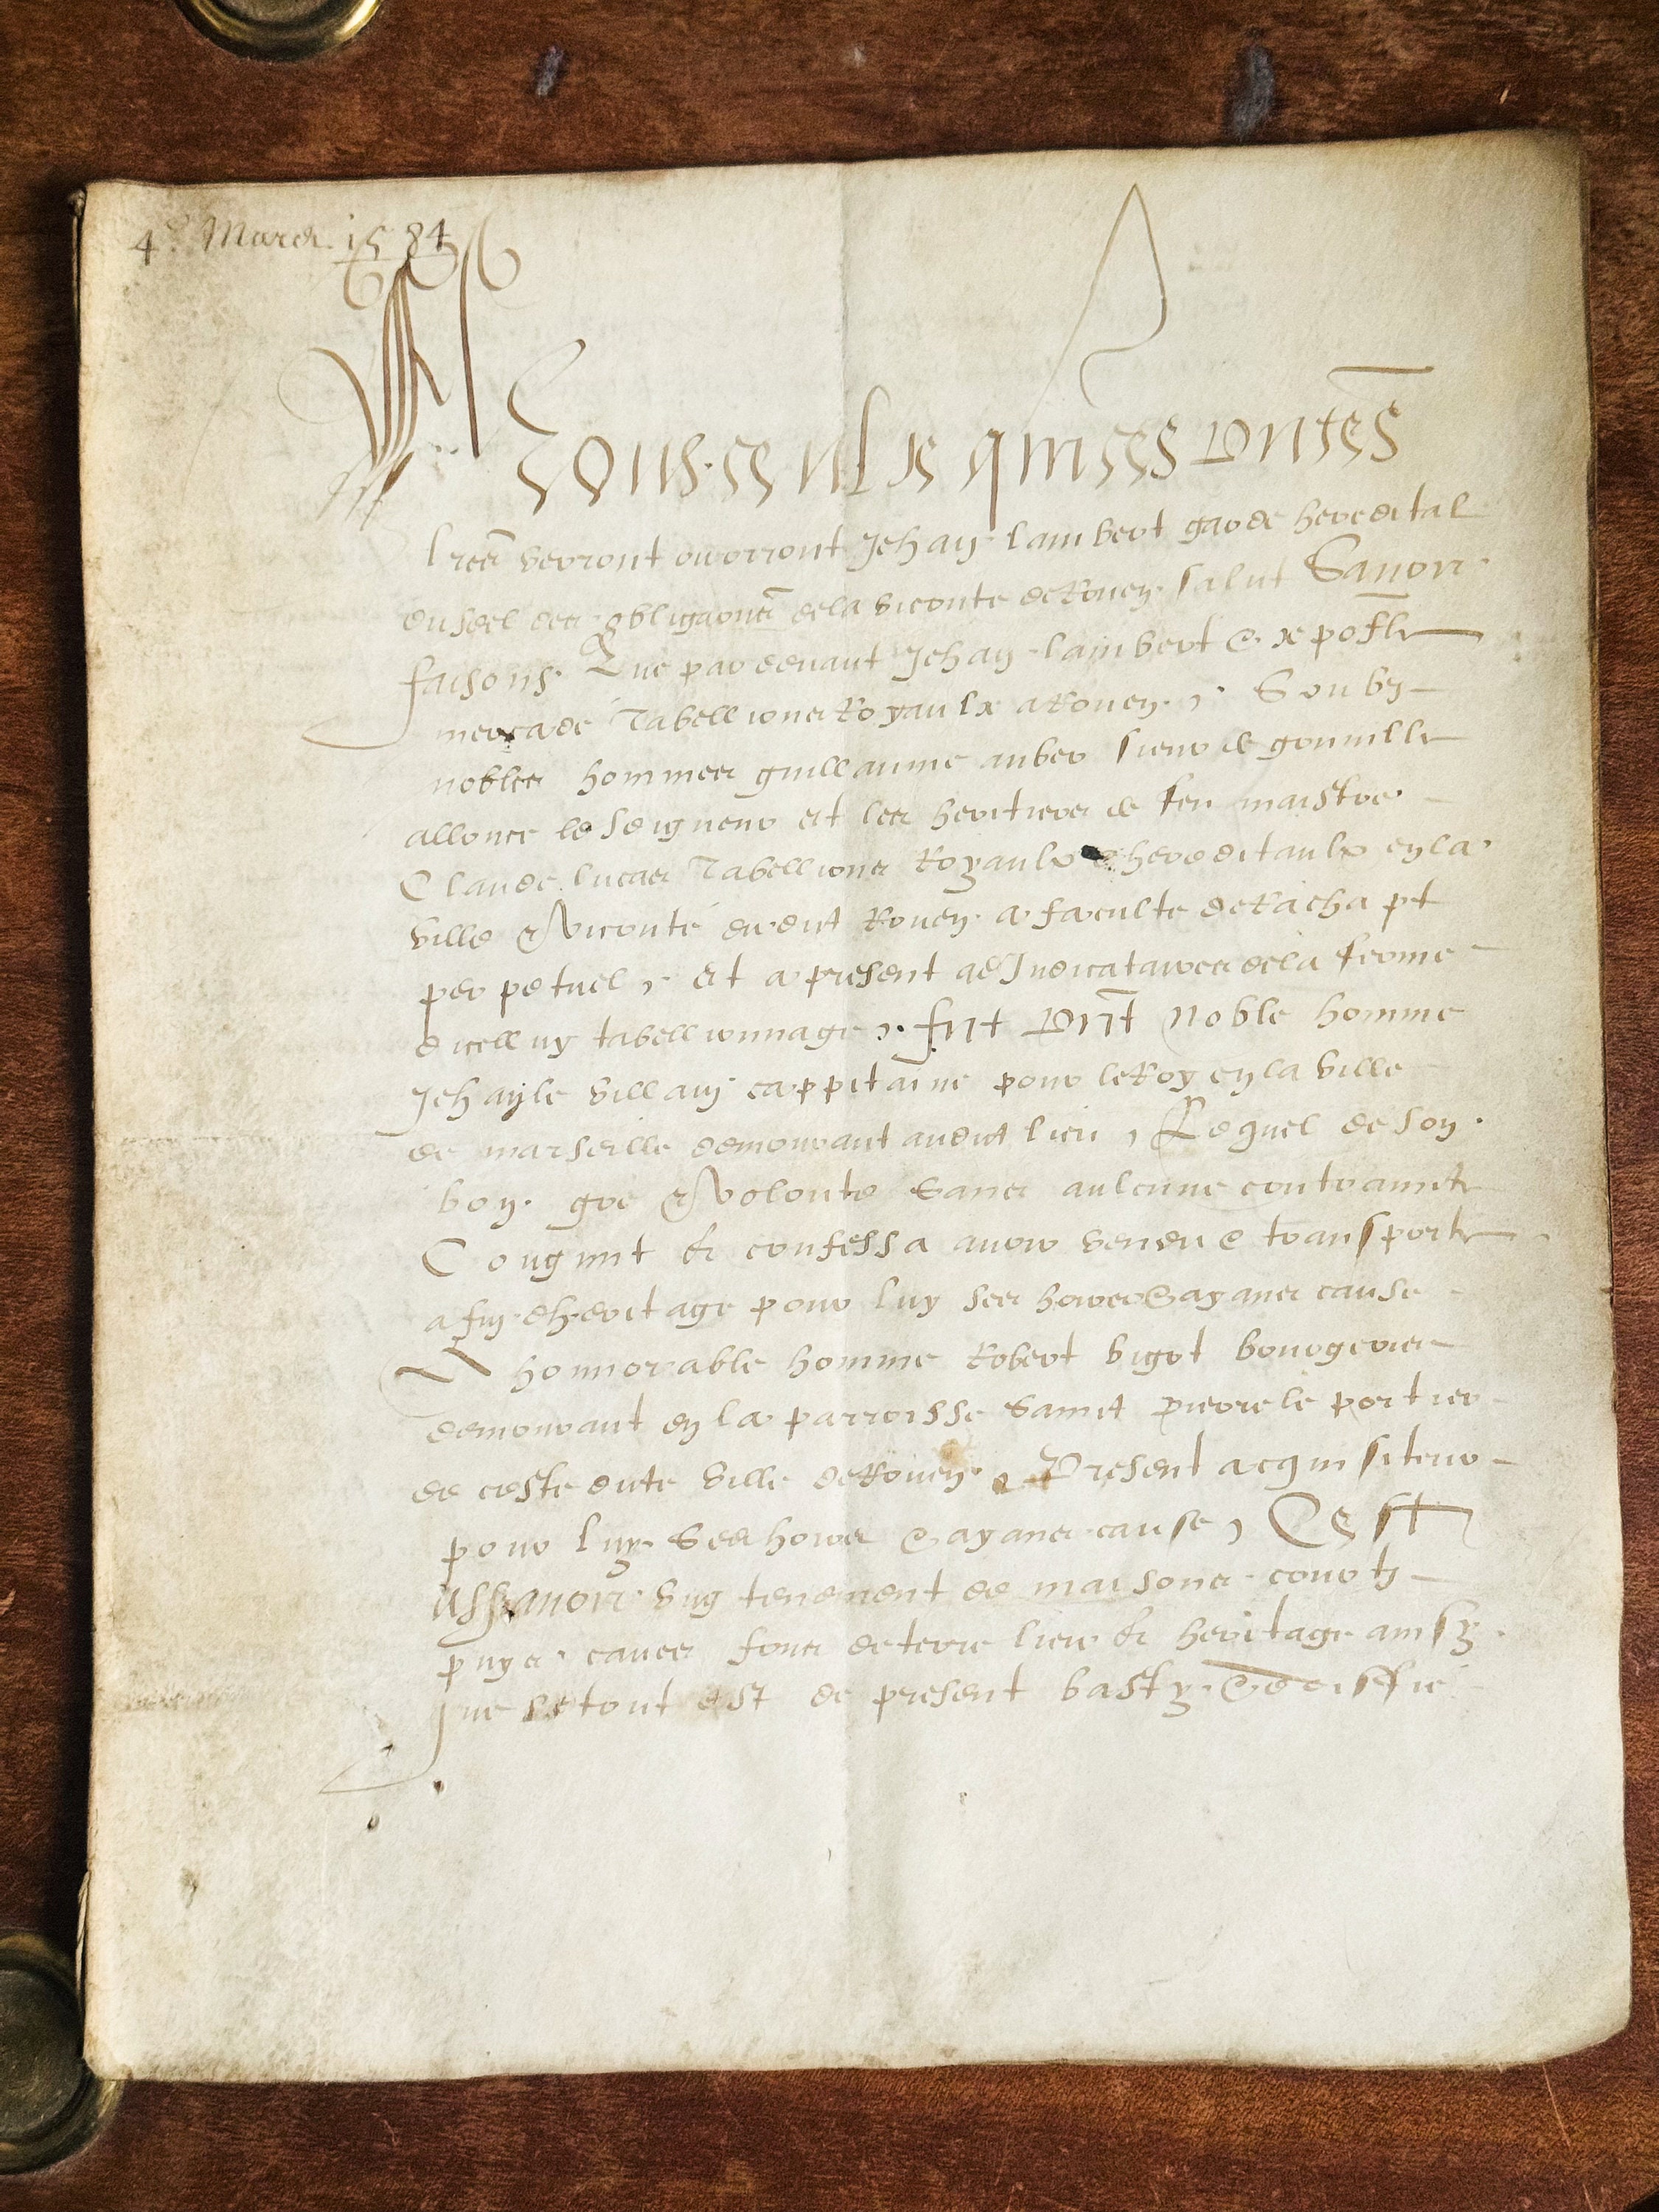 4e. March. 1584
A Tous ceulx qui ces pntes
lres verront ou orront Jehan lambert garde heredital
du seel des obligaons de la viconte de Rouen salut Savoir
faisons Que par devant Jehan lambert &
mercadé Tabellions Royaulx a Rouen, Soubz
nobles hommes guillaume auber sieur de gouville
allonce le seigneur et les heritiers de feu maistre
Claude lucas Tabellions Royaulx & hereditaulx en la
ville & viconté dudict Rouen a faculte de Rachapt
perpetuel, et a present adJudicataires de la ferme
dicelluy tabellionnage, fut pnt Noble homme
Jehan le villain cappitaine pour le Roy en la ville
de marseille demourant audict lieu, Lequel de son
bon gre & volonte sans aulcune contraincte
Congnut & confessa avoir vendu & transporte
a fin dheritage pour luy ses hoirs & ayans cause
A honnorable homme Robert bigot bourgeois
demourant en la parroisse Sainct pierre le portier
de ceste dicte ville de Rouen, Present acquisiteur
pour luy Ses hoirs & ayans cause, Cest
Assavoir ung tenement de maisons courtz
puys caves fons de terre lieu & heritage ainsy
que le tout est de present basty & ediffié